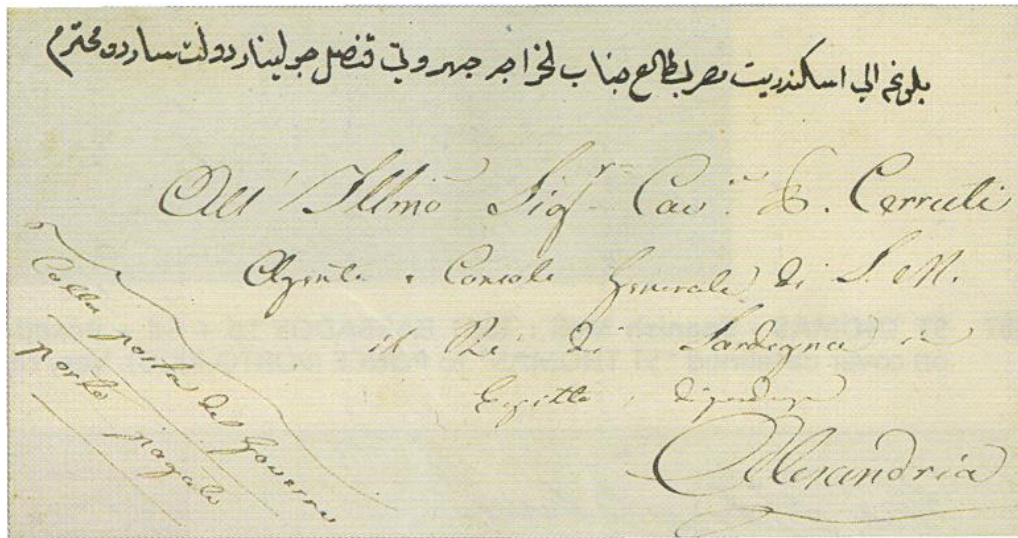 بلوغه الي اسكندريت مصر لمطالع جناب الخواجه جهروتي قنصل جولينار دولت ساردو محترم
All' Illmo Sigr Cavre E. Cerruti
Agente e Console Generale di S. M.
il Re di Sardegna in
Egitto e
Alessandria
Colla posta del Governo
porto pagato